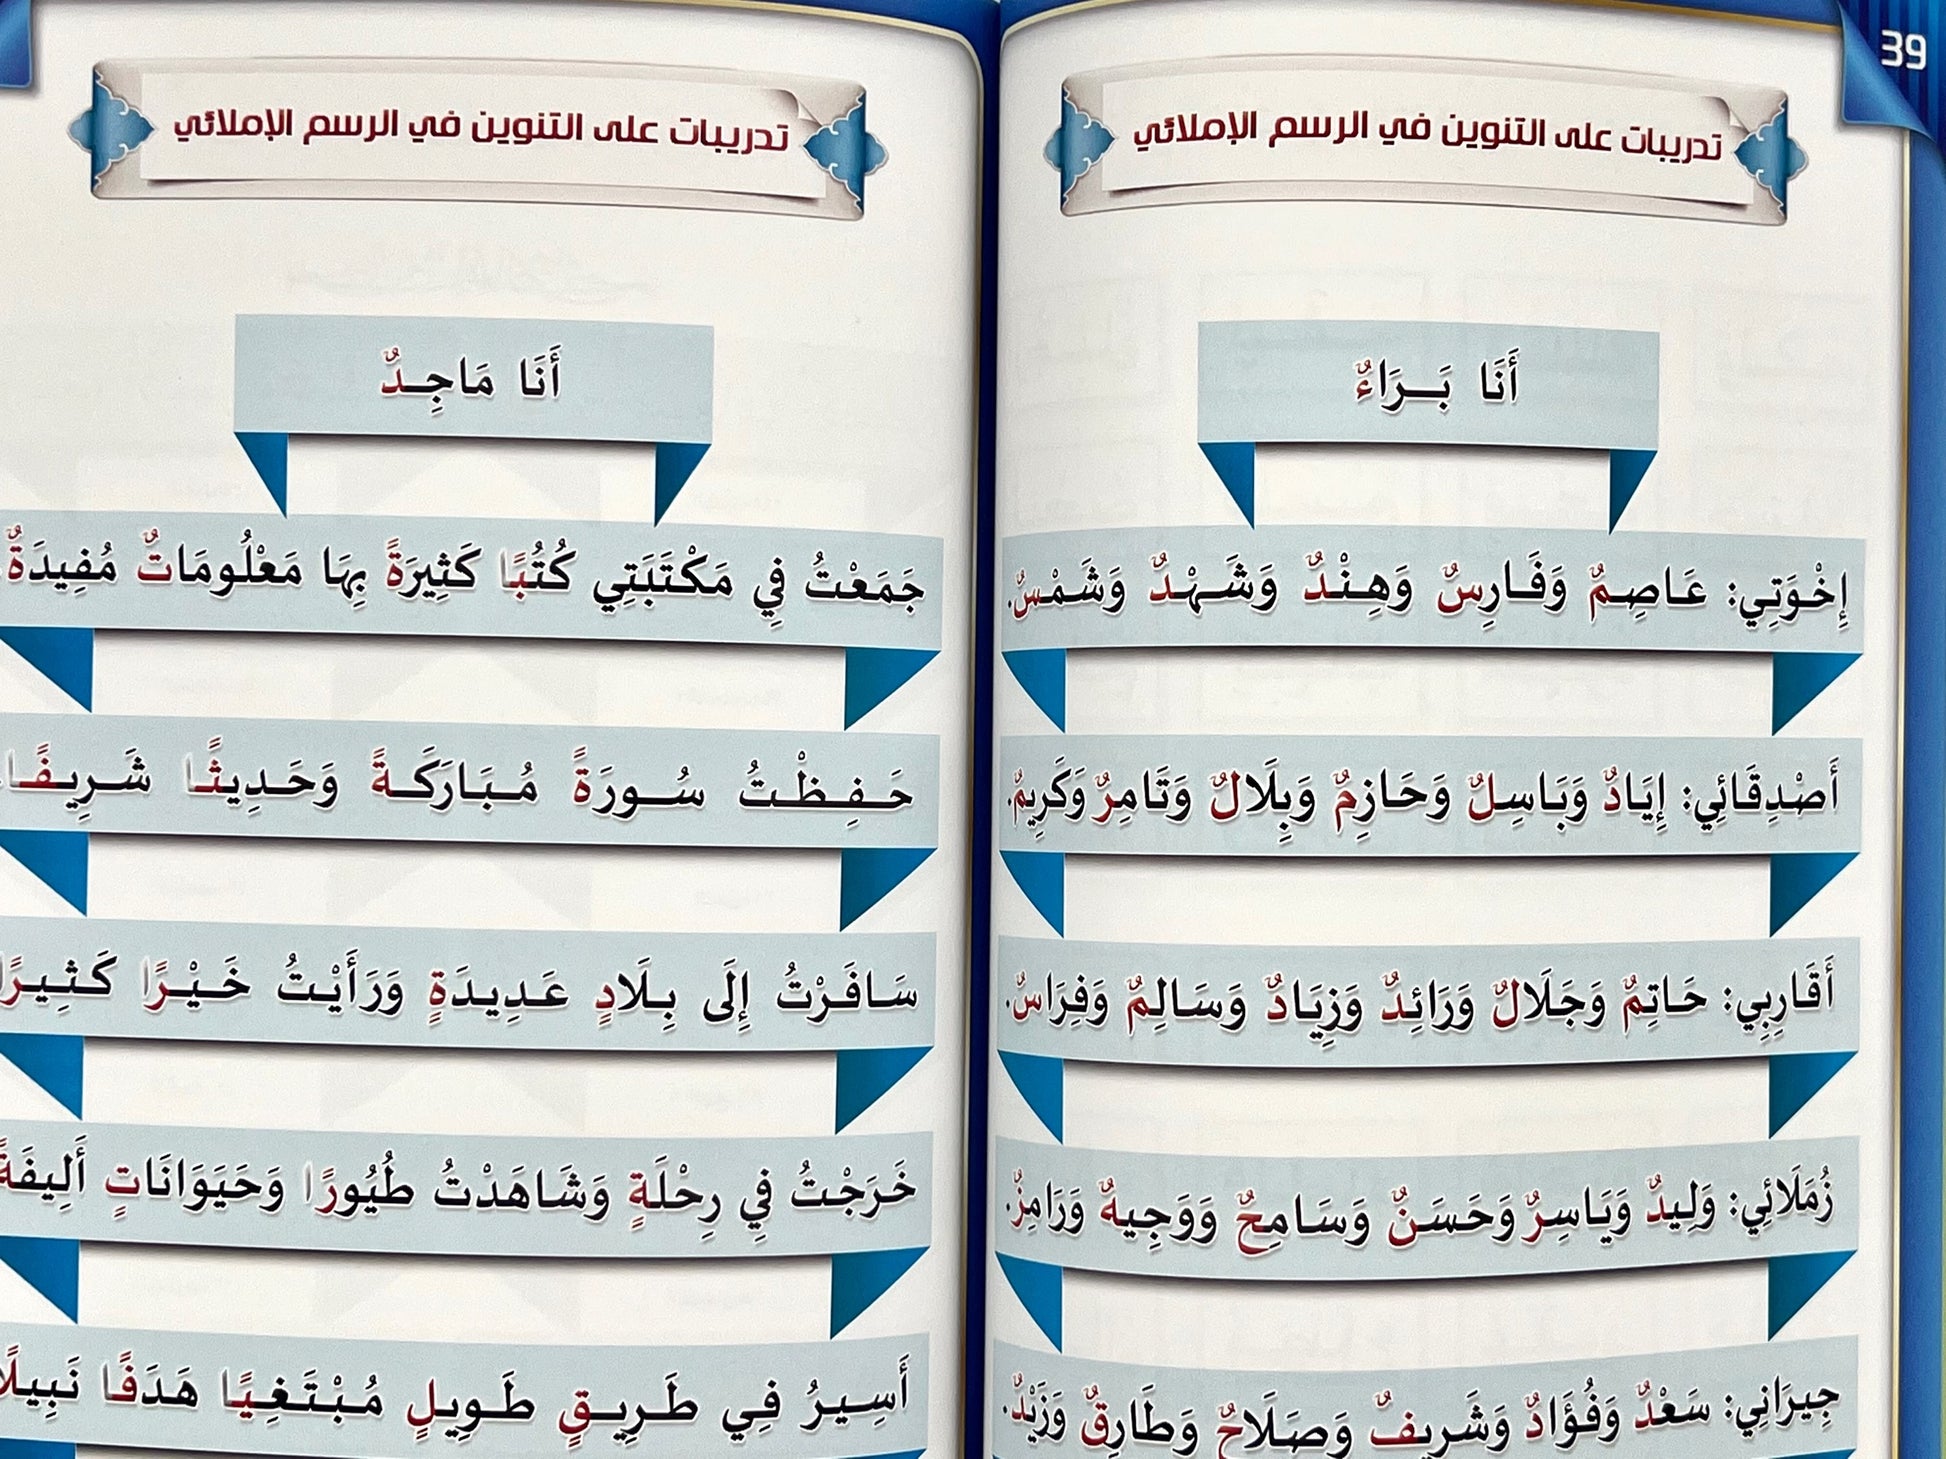 39
تدريبات على التنوين في الرسم الإملائي
أَنَا بَـرَاءٌ
إِخْوَتِي: عَاصِمٌ وَفَارِسٌ وَهِنْدٌ وَشَهْدٌ وَشَمْسٌ.
أَصْدِقَائِي: إِيَادٌ وَبَاسِلٌ وَحَازِمٌ وَبِلَالٌ وَتَامِرٌ وَكَرِيمٌ.
أَقَارِبِي: حَاتِمٌ وَجَلَالٌ وَرَائِدٌ وَزِيَادٌ وَسَالِمٌ وَفِرَاسٌ.
زُمَلَائِي: وَلِيدٌ وَيَاسِرٌ وَحَسَنٌ وَسَامِحٌ وَوَجِيهٌ وَرَامِزٌ.
جِيرَانِي: سَعْدٌ وَفُؤَادٌ وَشَرِيفٌ وَصَلَاحٌ وَطَارِقٌ وَزَيْدٌ.
تدريبات على التنوين في الرسم الإملائي
أَنَا مَاجِـدٌ
جَمَعْتُ فِي مَكْتَبَتِي كُتُبًا كَثِيرَةً بِهَا مَعْلُومَاتٌ مُفِيدَةٌ
حَـفِـظْـتُ سُـورَةً مُـبَـارَكَـةً وَحَـدِيـثًـا شَـرِيـفًـا.
سَـافَـرْتُ إِلَى بِـلَادٍ عَـدِيـدَةٍ وَرَأَيْـتُ خَـيْـرًا كَـثِـيـرًا
خَرَجْتُ فِي رِحْلَةٍ وَشَاهَدْتُ طُيُورًا وَحَيَوَانَاتٍ أَلِيفَةً
أَسِـيـرُ فِـي طَـرِيـقٍ طَـوِيـلٍ مُـبْـتَـغِـيًـا هَـدَفًـا نَـبِـيـلًا